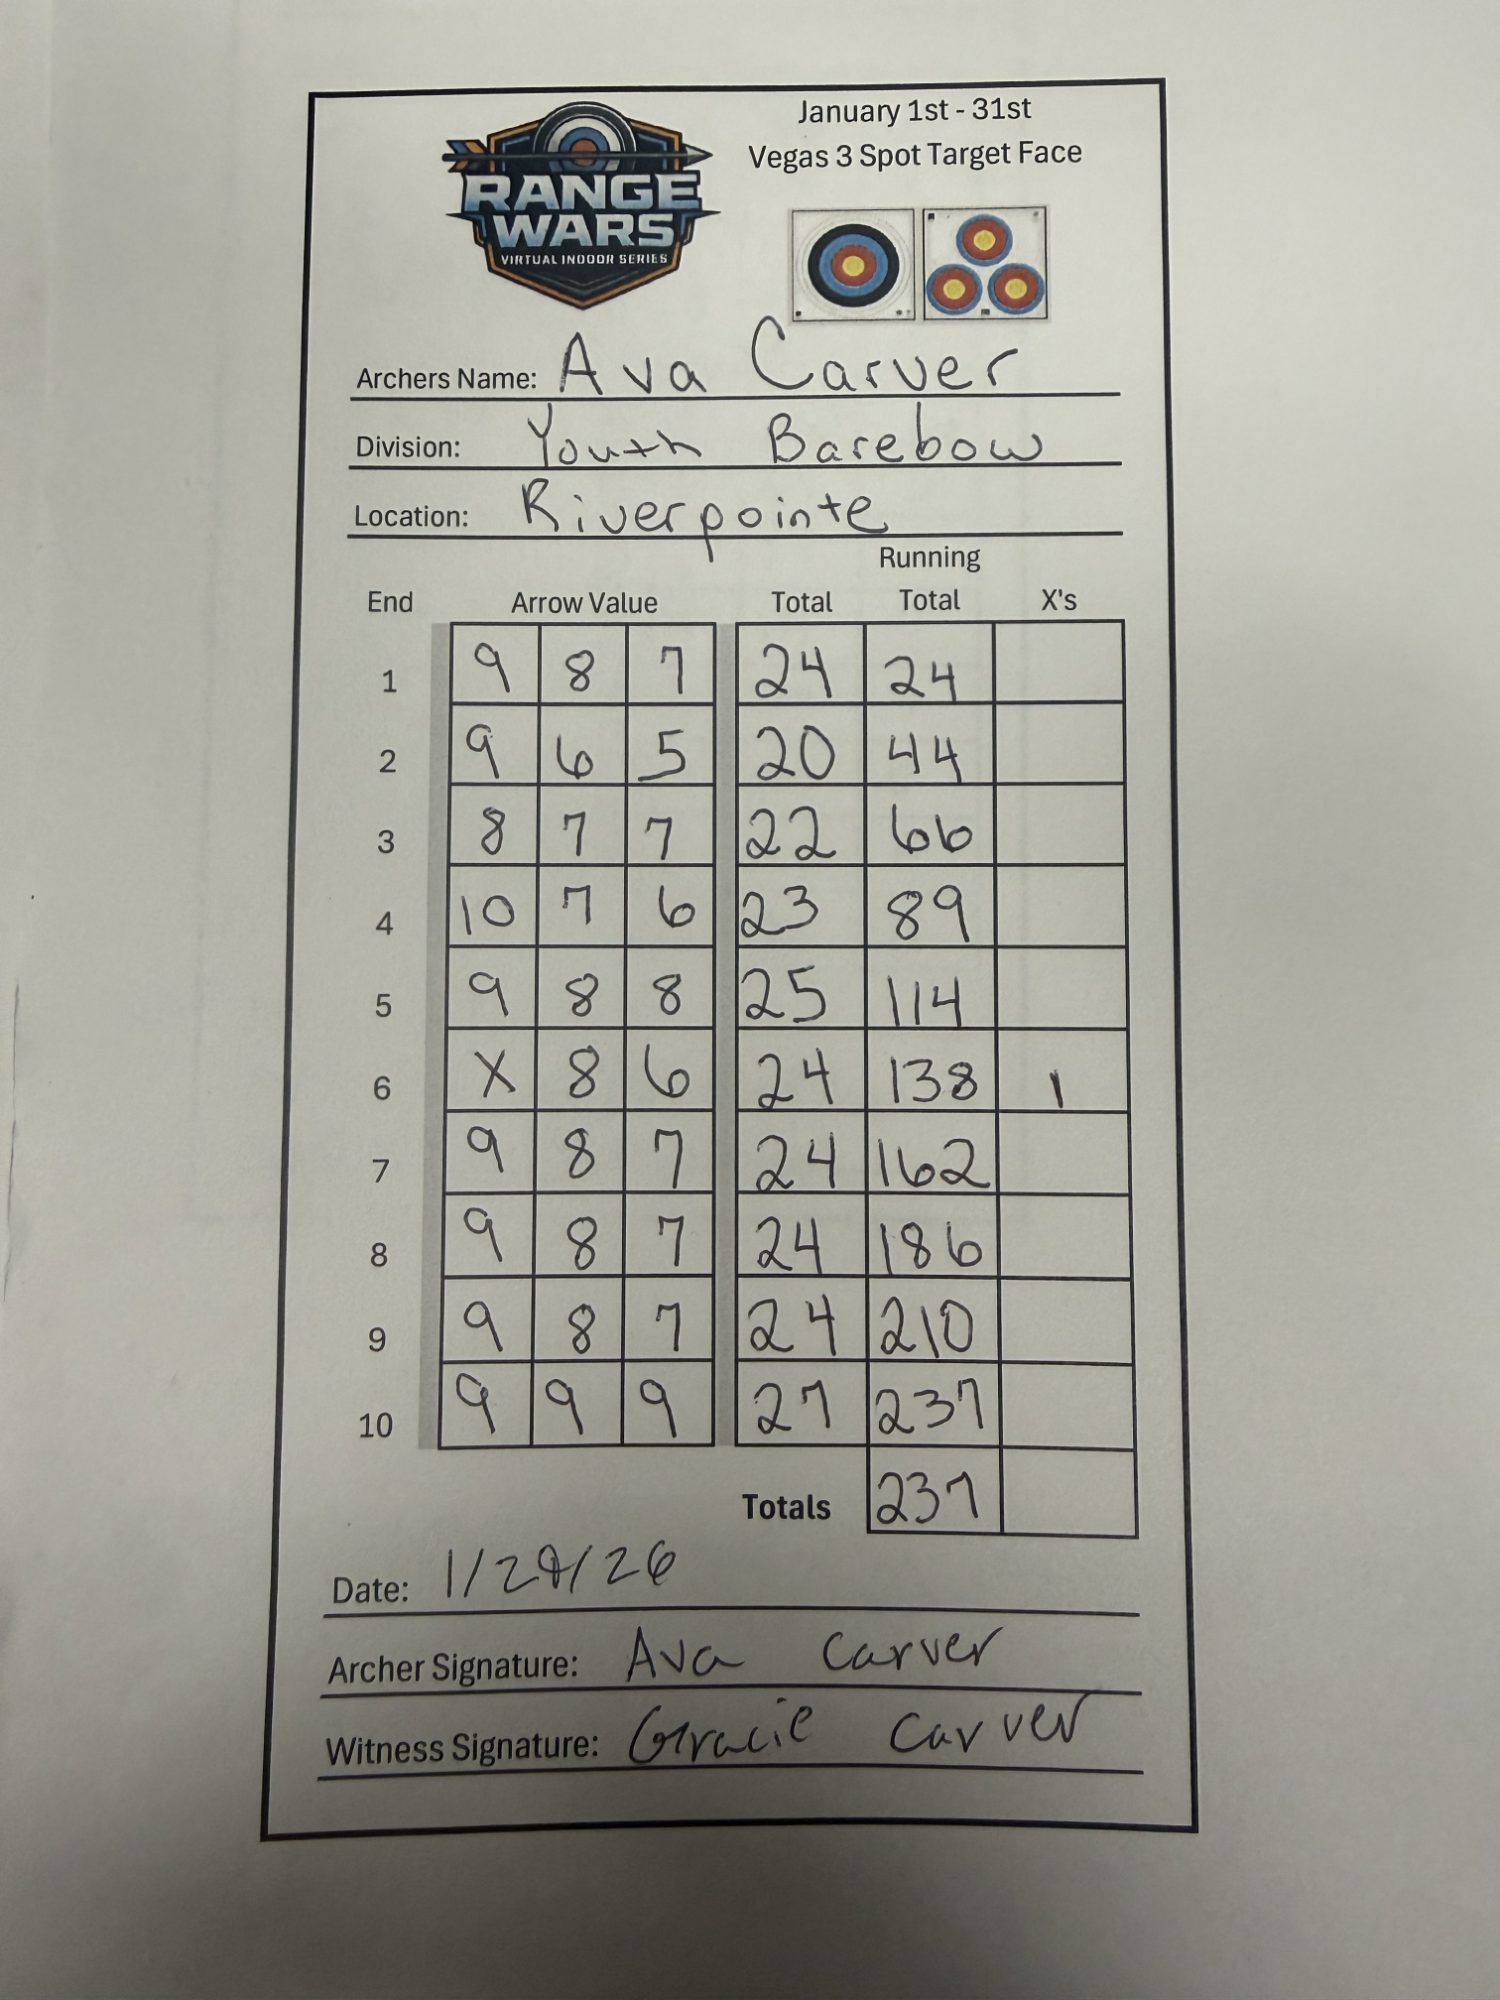 January 1st - 31st
Vegas 3 Spot Target Face
RANGE
WARS
VIRTUAL INDOOR SERIES
Archers Name: Ava Carver
Division: Youth Barebow
Location: Riverpointe
Running
End Arrow Value Total Total X's
1 9 8 7 24 24
2 9 6 5 20 44
3 8 7 7 22 66
4 10 7 6 23 89
5 9 8 8 25 114
6 X 8 6 24 138 1
7 9 8 7 24 162
8 9 8 7 24 186
9 9 8 7 24 210
10 9 9 9 27 237
Totals 237
Date:
Archer Signature: Ava Carver
Witness Signature: Gracie Carver